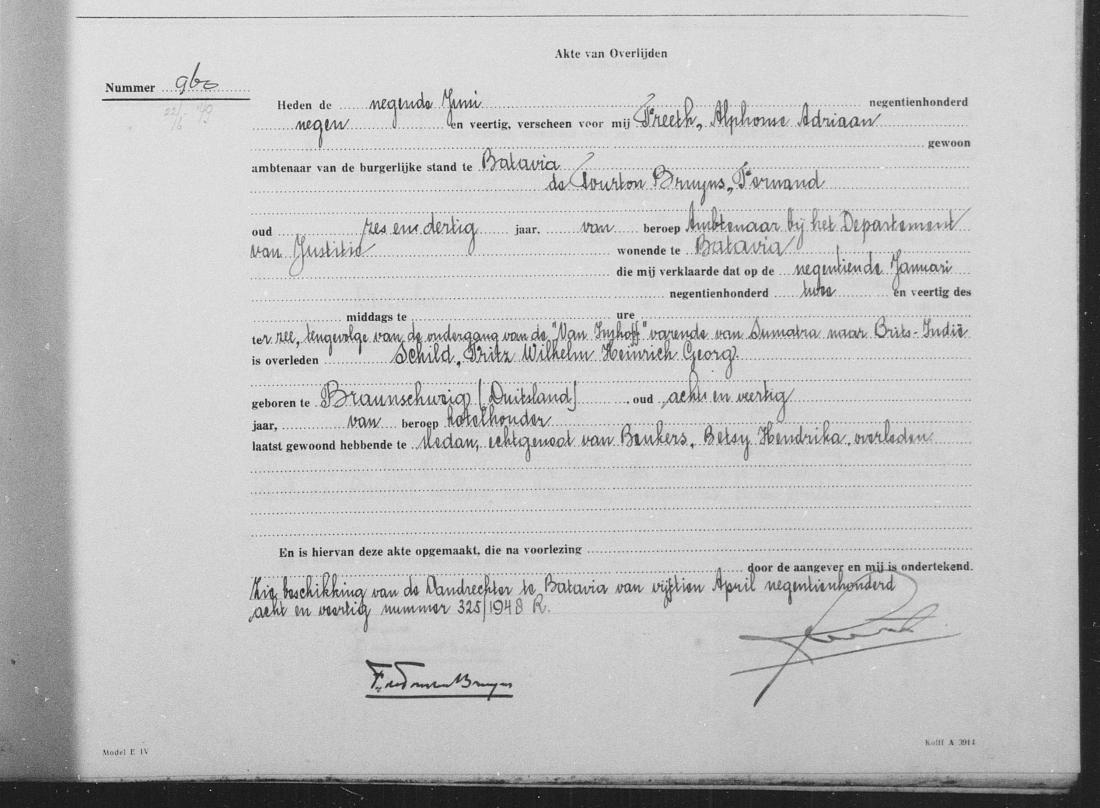 Akte van Overlijden
Nummer 960
22/6 '49
Heden de negende Juni negentienhonderd
negen en veertig, verscheen voor mij Treeth, Alphonse Adriaan
gewoon
ambtenaar van de burgerlijke stand te Batavia
de Tourton Bruyns, Fernand
oud zes en dertig jaar, van beroep Ambtenaar bij het Departement
van Justitie wonende te Batavia
die mij verklaarde dat op de negentiende Januari
negentienhonderd twee en veertig des
middags te ure
ter zee, tengevolge van de ondergang van de "Van Imhoff" varende van Sumatra naar Brits-Indië
is overleden Schild, Fritz Wilhelm Heinrich Georg
geboren te Braunschweig [Duitsland] , oud acht en veertig
jaar, van beroep hotelhouder
laatst gewoond hebbende te Medan, echtgenoot van Beukers, Betsy Hendrika, overleden.
En is hiervan deze akte opgemaakt, die na voorlezing
door de aangever en mij is ondertekend.
Zie beschikking van de Landrechter te Batavia van vijftien April negentienhonderd
acht en veertig nummer 325/1948 R.
Model E IV
Kolff A 3914